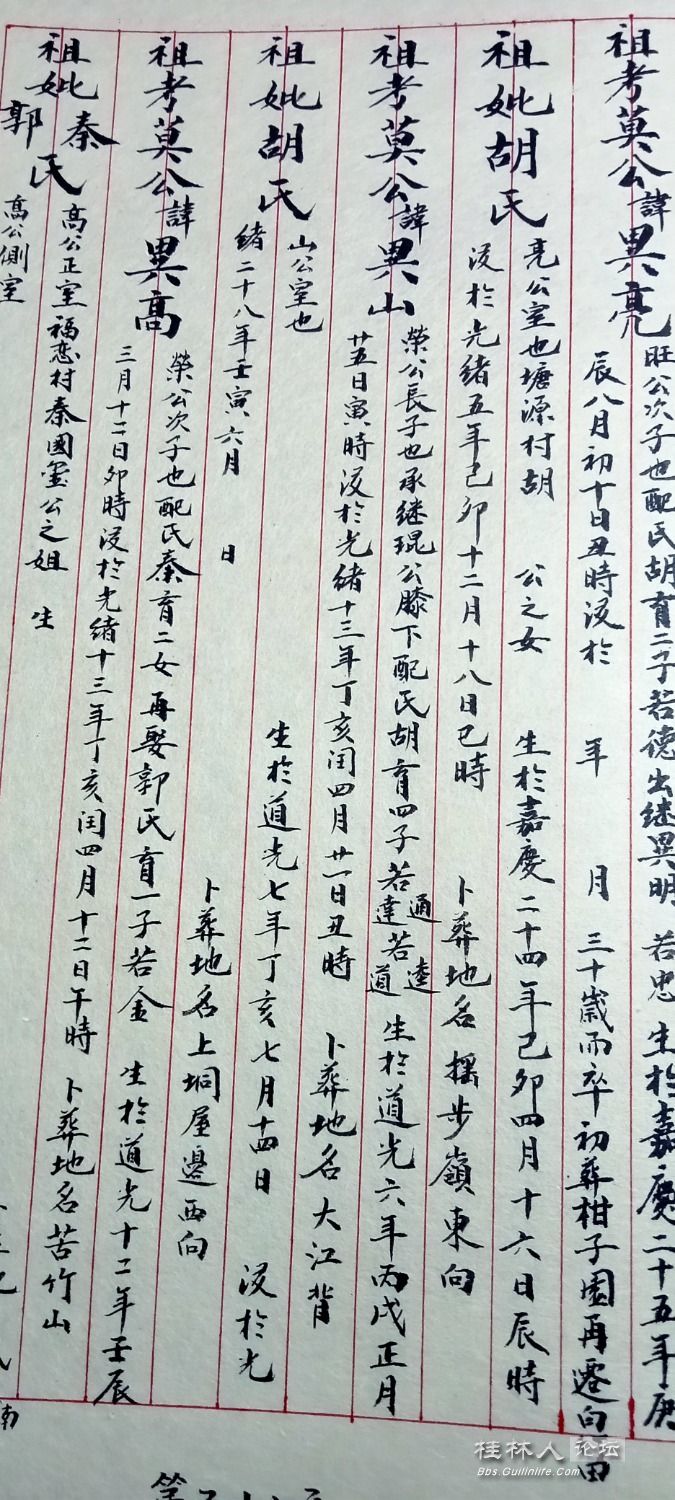 祖考莫公諱異亮
旺公次子也配氏胡育二子若德出继異明 若忠 生於嘉慶二十五年庚
辰八月初十日丑時没於 年 月 三十歲而卒初葬柑子園再遷白 田
祖妣胡氏
亮公室也塘源村胡 公之女 生於嘉慶二十四年己卯四月十六日辰時
没於光绪五年己卯十二月十八日巳時 卜葬地名摇步嶺東向
祖考莫公諱異山
榮公長子也承继琨公膝下配氏胡育四子若通達若逵道 生於道光六年丙戌正月
廿五日寅時没於光绪十三年丁亥闰四月廿一日丑時 卜葬地名大江背
祖妣胡氏
山公室也 生於道光七年丁亥七月十四日 没於光
绪二十八年壬寅六月 日 卜葬地名上垌屋邊西向
祖考莫公諱異高
榮公次子也配氏秦育二女再娶郭氏育一子若金 生於道光十二年壬辰
三月十二日卯時没於光绪十三年丁亥闰四月十二日午時 卜葬地名苦竹山
祖妣秦郭氏
高公正室福恋村秦國璽公之姐 生
高公側室
桂林人论坛
Bbs.Guilinlife.Com